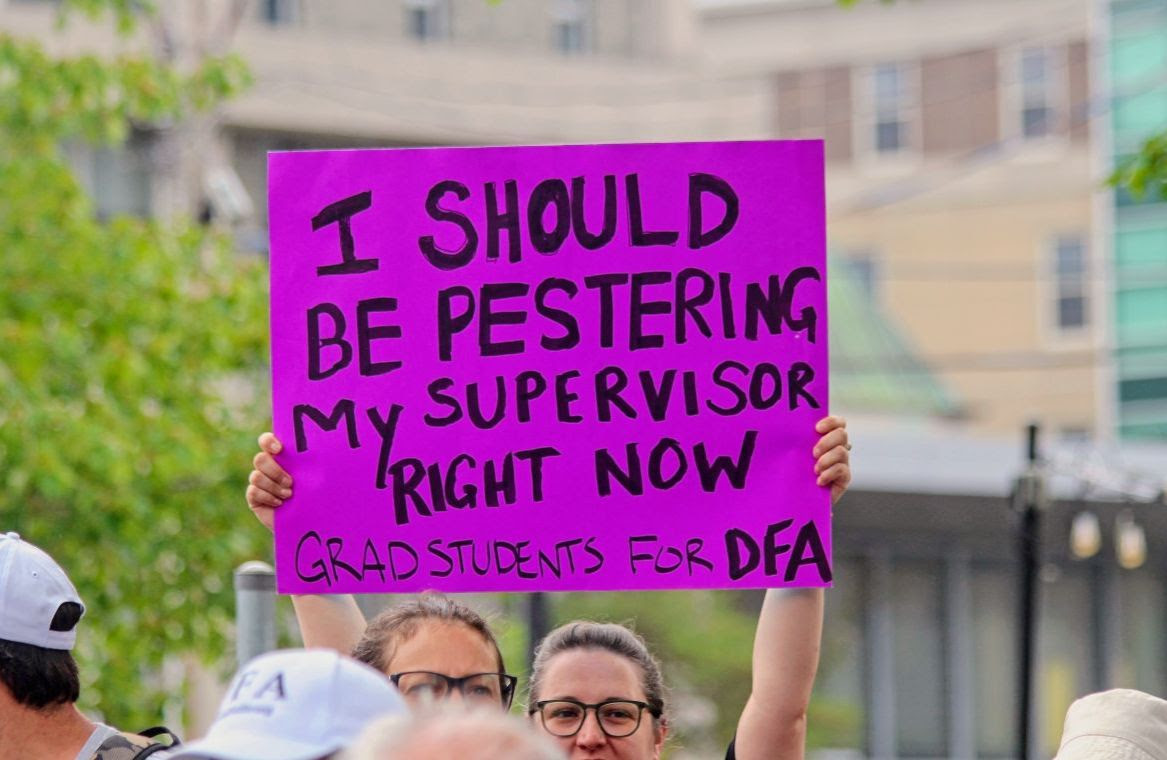 I SHOULD
BE PESTERING
MY SUPERVISOR
RIGHT NOW
GRAD STUDENTS FOR DFA
FA